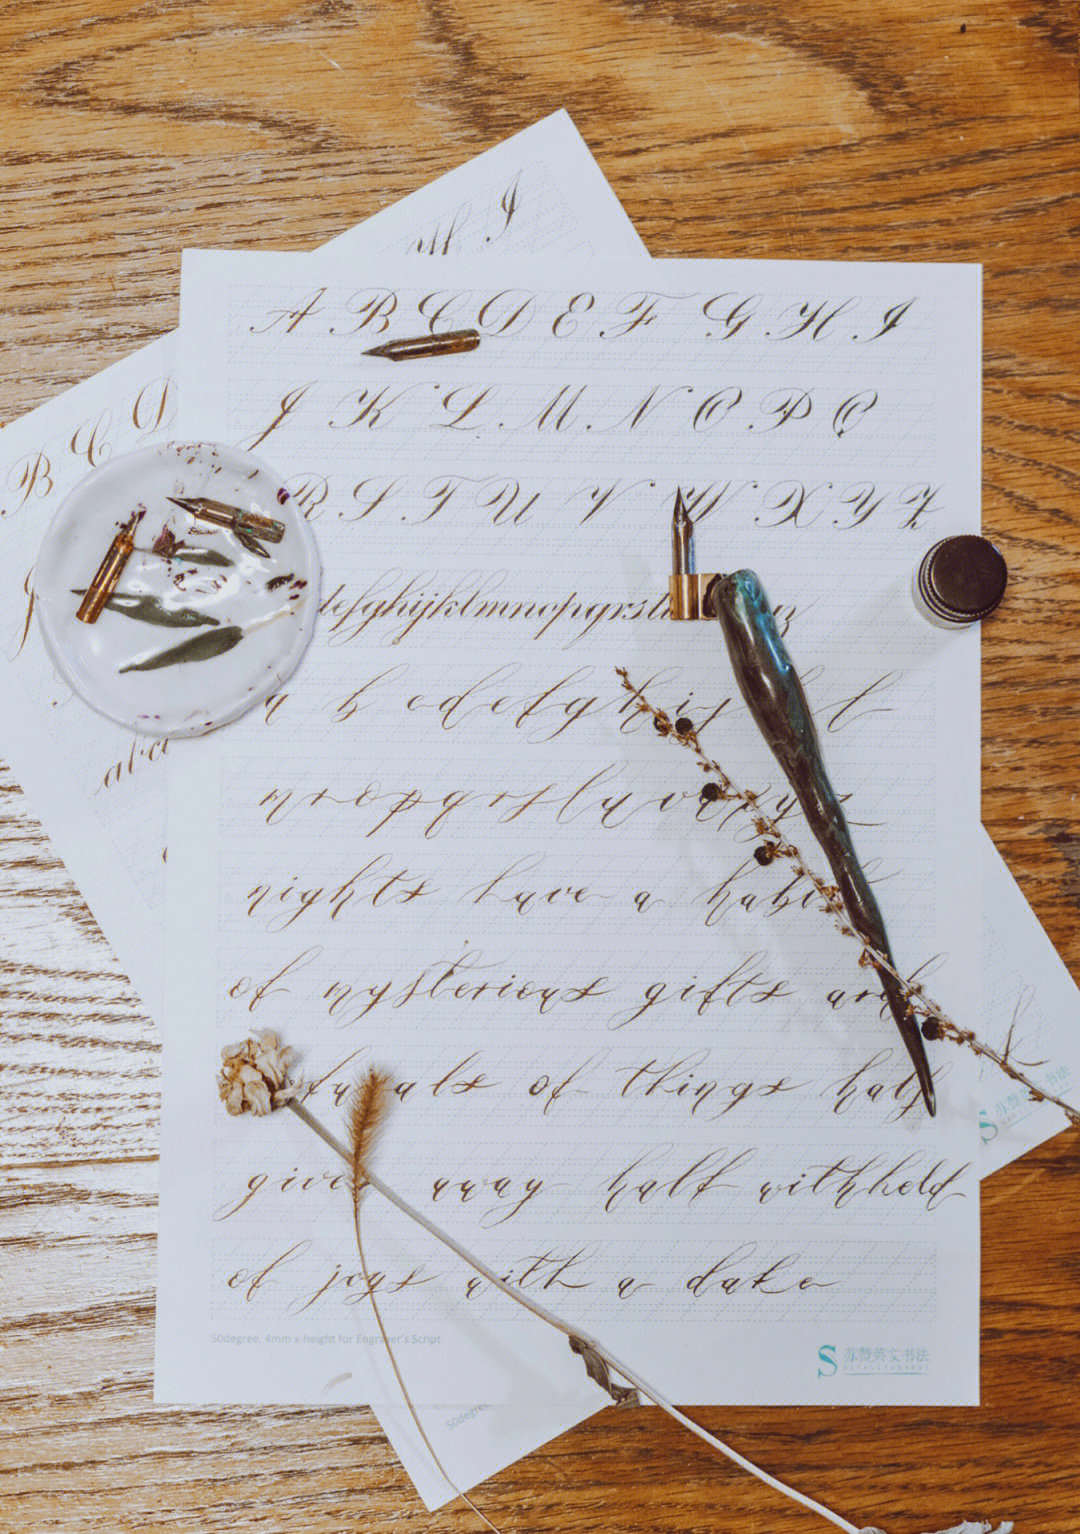 B C D
A B C D E F G H I
J K L M N O P Q
R S T U V W X Y Z
defghijklmnopqrstu
a b c d e f g h i j l
n o p q r s t u v
nights have a habit
of mysterious gifts and
of things half
given away half withheld
of joys with a
50degree, 4mm x-height for Engraver's Script
苏赞英文书法